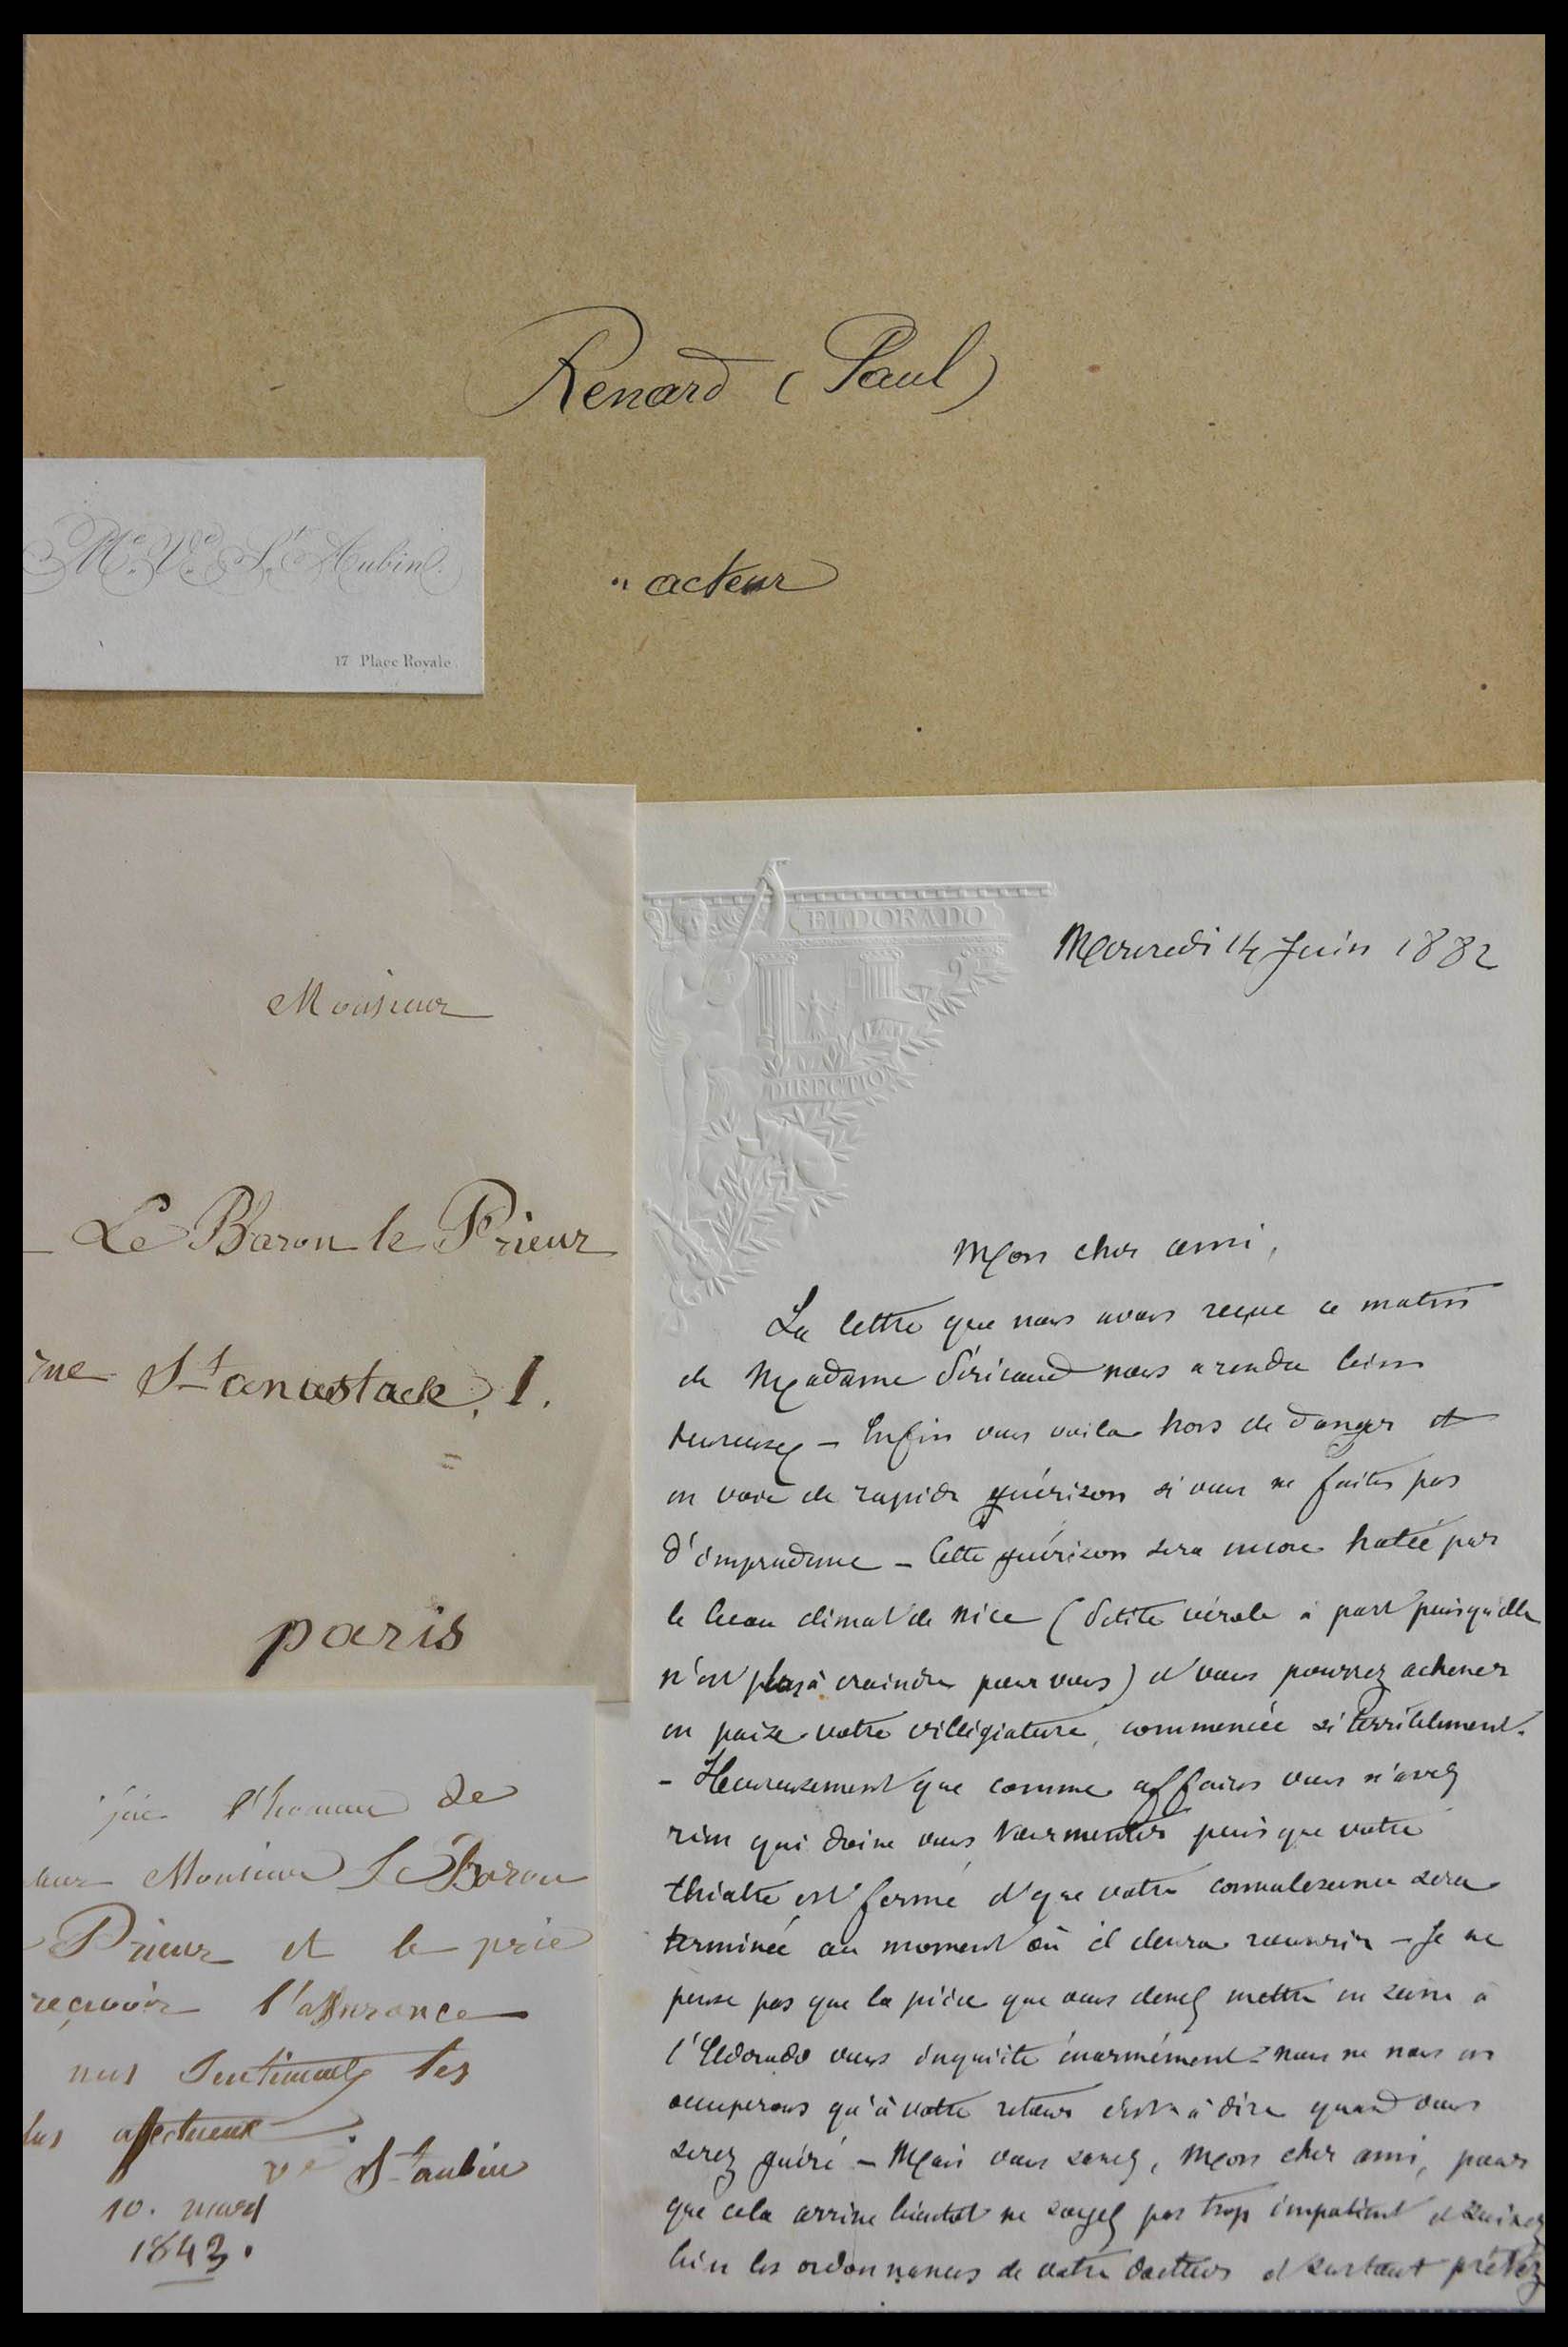 Renard (Paul)
" acteur
Me. Ve. St. Aubin.
17 Place Royale.
Monsieur
Le Baron le Prieur
rue St anastase, 1.
paris
j'ai l'honneur de
Monsieur Le Baron
Prieur et le prie
reçevoir l'assurance
mes Sentiments les
affectueux
ve St aubin
10. mars
1843.
ELDORADO
DIRECTION
Mercredi 14 Juin 1882
Mon cher ami,
La lettre que nous avons reçue ce matin
de Madame Déricaud nous a rendu bien
heureux – Enfin vous voila hors de danger et
en voie de rapide guérison si vous ne faites pas
d'imprudence – Cette guérison sera encore hatée par
le beau climat de Nice (Petite vérole à part puisqu'elle
n'est plus à craindre pour vous) et vous pourrez achever
en paix votre villégiature, commencée si terriblement.
– Heureusement que comme affaires vous n'avez
rien qui doive vous tourmenter puisque votre
théatre est fermé et que votre convalescence sera
terminée au moment où il devra réouvrir – Je ne
pense pas que la pièce que vous devez mettre en scène à
l'Eldorado vous inquiète énormément – nous ne nous en
occuperons qu'à votre retour c'est à dire quand vous
serez guéri – Mais vous savez, Mon cher ami, pour
que cela arrive bientôt ne soyez pas trop impatient et suivez
bien les ordonnances de votre docteur et surtout prêtez